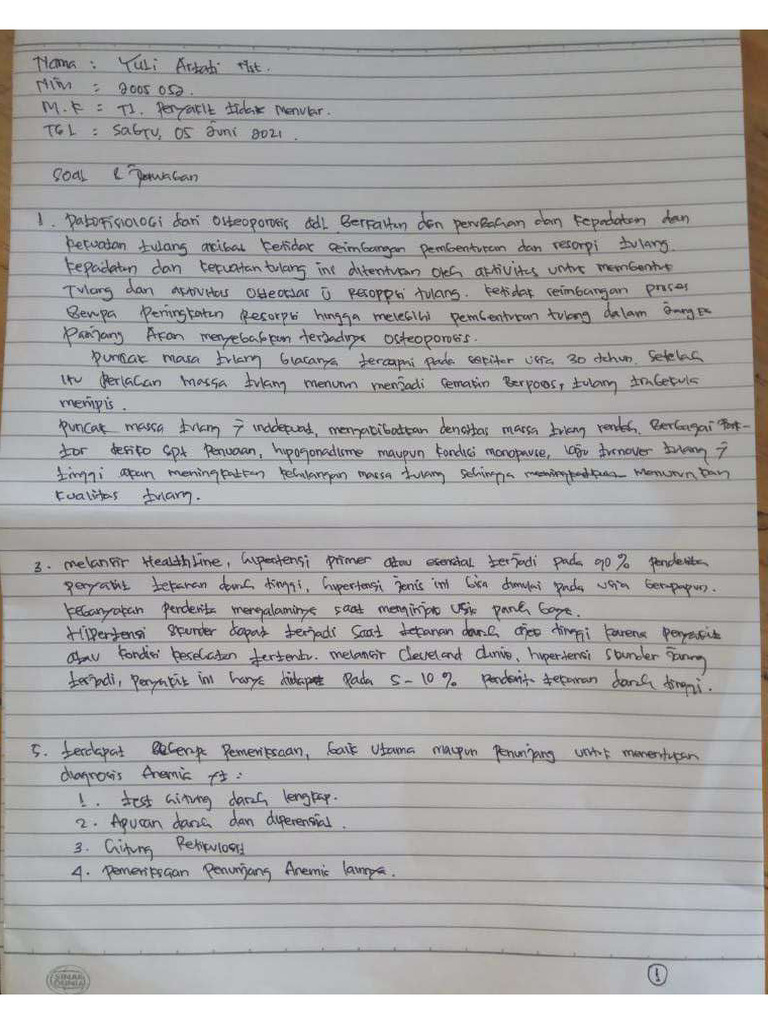 Nama : Yuli Artati Nst.
Nim : 2005052.
M.K : T1. Penyakit tidak Menular.
TGL : Sabtu, 05 Juni 2021.
Soal & Jawaban
1. Patofisiologi dari Osteoporosis adl Berkaitan dgn perubahan dan kepadatan dan
kekuatan tulang akibat ketidak seimbangan pembentukan dan resorpi tulang.
kepadatan dan kekuatan tulang ini ditentukan oleh aktivitas untuk membentuk
Tulang dan aktivitas Osteoklas resoppsi tulang. Ketidak seimbangan proses
Berupa Peningkatan Resorpsi hingga melebihi pembentukan tulang dalam Jangka
Panjang Akan menyebabkan terjadinya Osteoporosis.
Puncak masa tulang biasanya tercapai pada sekitar usia 30 tahun. Setelah
itu Perlahan Massa tulang menurun menjadi semakin Berporos, tulang trabekula
menipis.
Puncak massa tulang inadekuat, mengakibatkan densitas massa tulang rendah. Berbagai fak-
tor resiko spt Penuaan, hipogonadisme maupun kondisi monopause, laju turnover tulang
tinggi akan meningkatkan kehilangan massa tulang sehingga menurunkan
kualitas tulang.
3. melansir Healthline, hipertensi primer atau esensial terjadi pada 90% penderita
penyakit tekanan darah tinggi, hipertensi jenis ini bisa dimulai pada usia berapapun.
kebanyakan penderita mengalaminya saat menginjak usia paruh baya.
Hipertensi Skunder dapat terjadi saat tekanan darah tinggi karena penyakit
atau kondisi kesehatan tertentu. melansir Cleveland clinic, hipertensi skunder jarang
terjadi, penyakit ini hanya didapat pada 5-10% penderita tekanan darah tinggi.
5. terdapat Beberapa Pemeriksaan, baik utama maupun Penunjang untuk menentukan
diagnosis Anemia yt :
1. test hitung darah lengkap.
2. Apusan darah dan diferensial.
3. Hitung Retikulosit
4. Pemeriksaan Penunjang Anemia lainnya.
SINAR
DUNIA
1